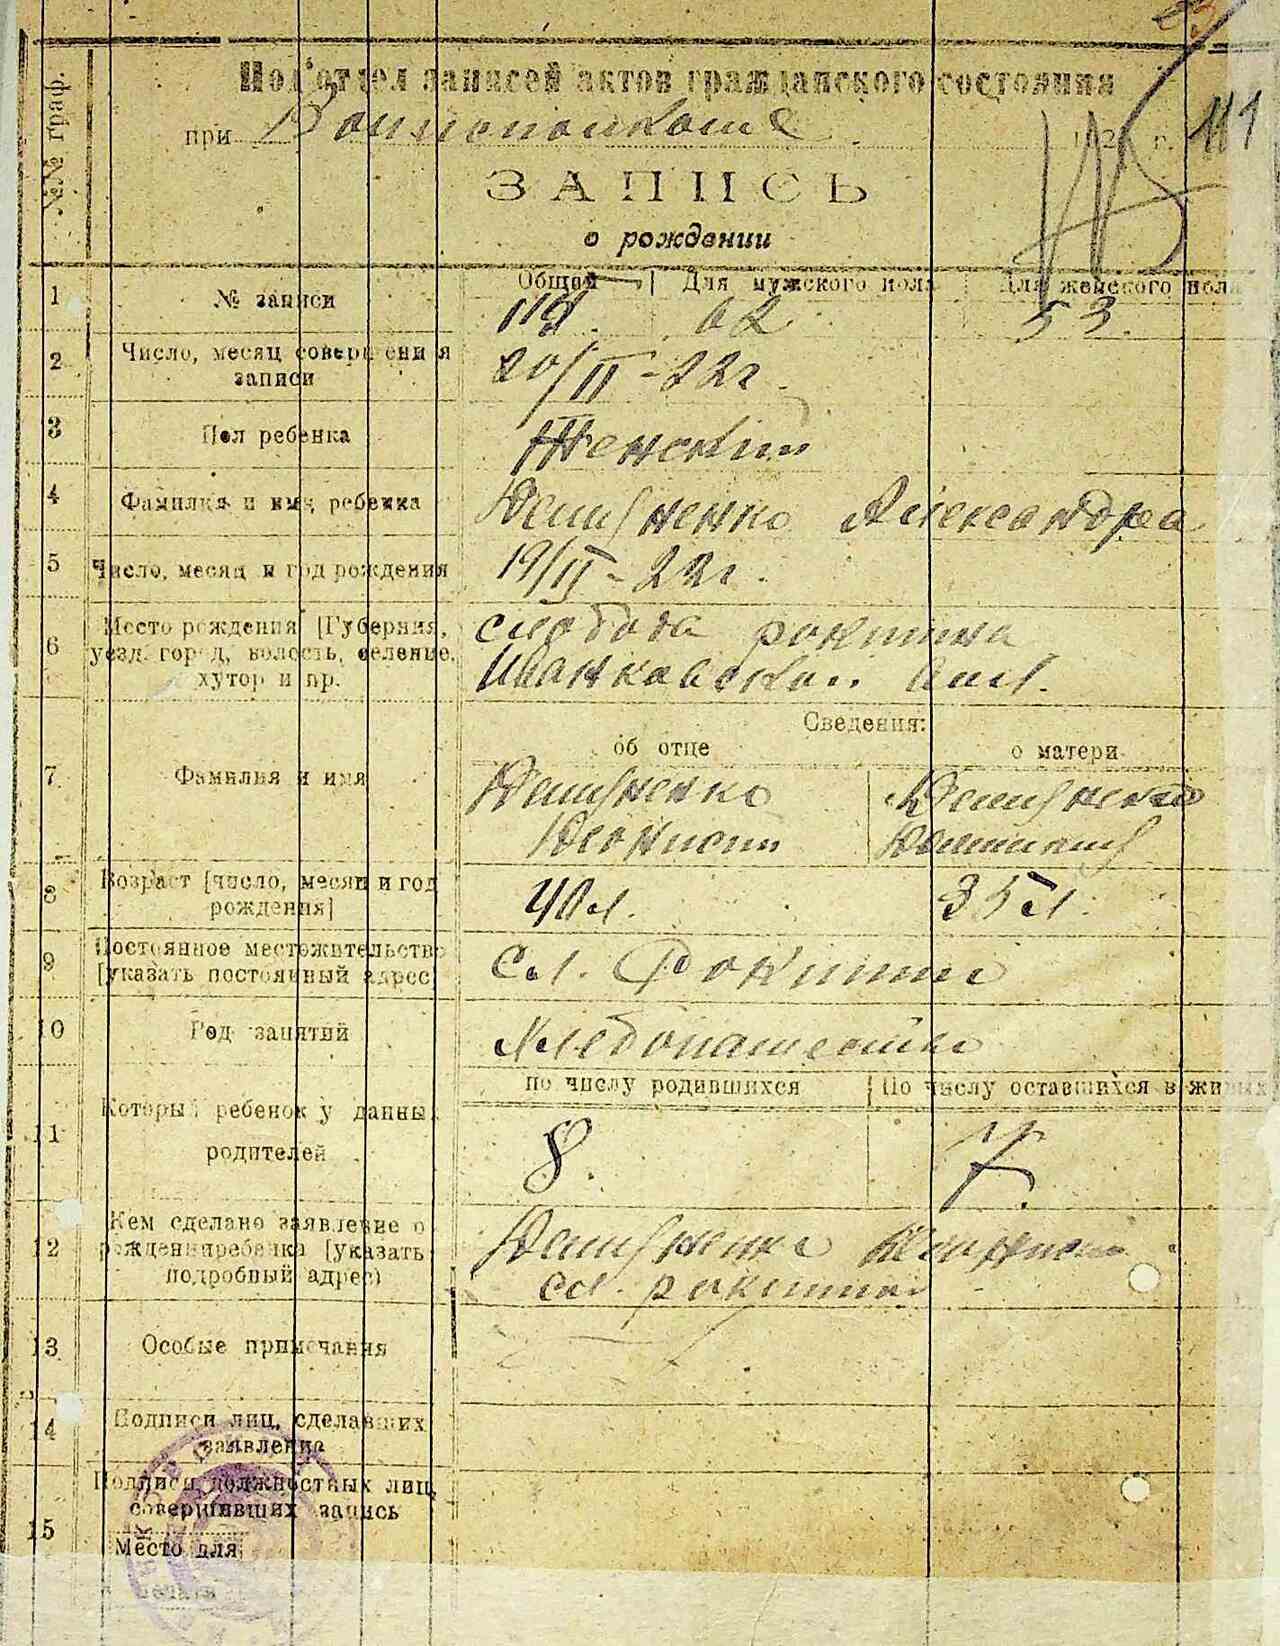 №№ граф.
Подотдел записей актов гражданского состояния
при Волисполкоме 192 г.
ЗАПИСЬ
о рождении
1 № записи Общей Для мужского пола Для женского пола
62 53.
2 Число, месяц совершения записи 20/II-22г.
3 Пол ребенка Женский
4 Фамилия и имя ребенка Александра
5 Число, месяц и год рождения 19/II-22г.
6 Место рождения [Губерния, слобода рокитна
уезд, город, волость, селение, Иванковской вол.
хутор и пр.
Сведения:
об отце о матери
7 Фамилия и имя
8 Возраст [число, месяц и год 40 л. 35 л.
рождения]
9 Постоянное местожительство Сл. Рокитна
[указать постоянный адрес]
10 Род занятий Хлебопашество
по числу родившихся По числу оставшихся в живых
11 Который ребенок у данных 8. 7.
родителей
12 Кем сделано заявление о
рождении ребенка [указать сл. рокитна
подробный адрес)
13 Особые примечания
14 Подписи лиц, сделавших
заявления
Подписи должностных лиц,
совершивших запись
15
Место для
печати